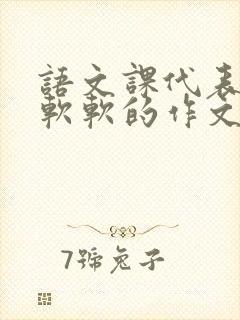 語文課代表
軟軟的作文
7號兔子